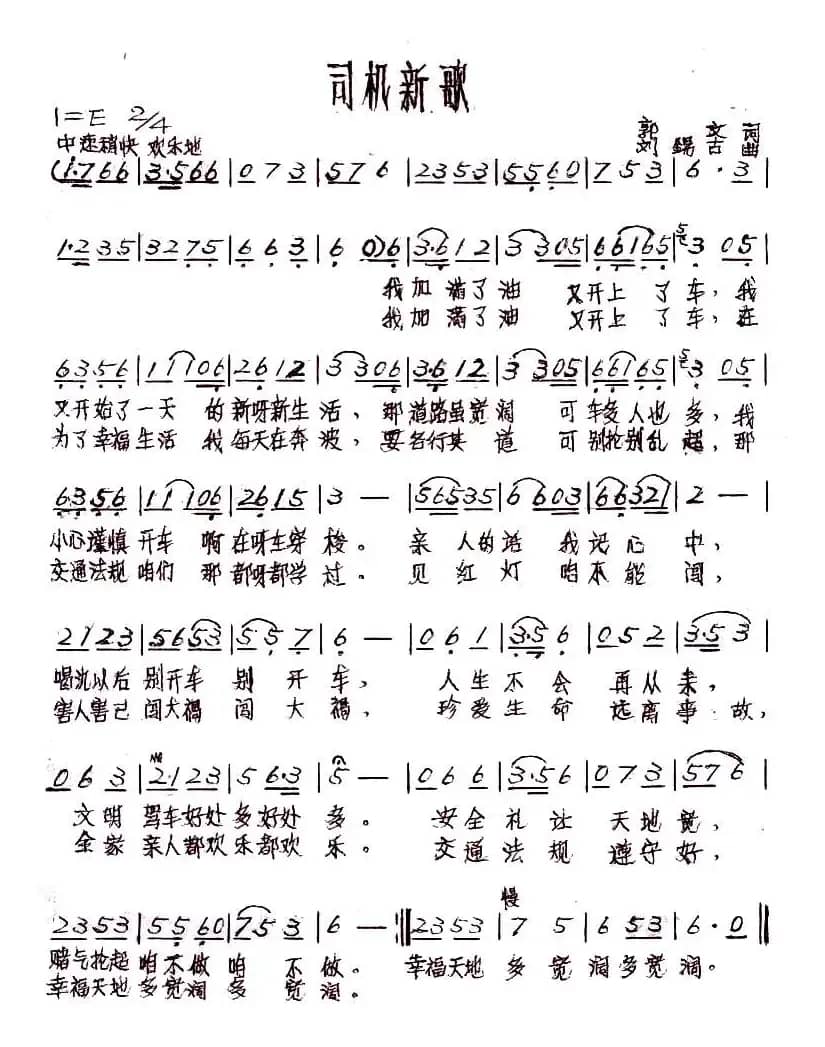 司机新歌
1=E 2/4
中速稍快 欢乐地
郭文词
刘锡古曲
(1·766|3·566|073|576|2353|5560|753|6·3|
1·235|3275|663|60)6|3·612|33305|66165|305|
我加满了油 又开上了车,我
我加满了油 又开上了车,在
6356|11106|2612|3306|3·612|33305|66165|305|
又开始了一天的新呀新生活,那道路虽宽阔 可车多人也多,我
为了幸福生活 我每天在奔波,要各行其道 可别抢别乱超,那
6356|11106|2615|3—|56535|6603|66321|2—|
小心谨慎开车啊在呀在穿梭。亲人的话 我记心中,
交通法规咱们那都呀都学过。见红灯 咱不能闯,
2123|5653|557|6—|061|3·56|052|3·53|
喝酒以后别开车别开车,人生不会再从来,
害人害己闯大祸闯大祸,珍爱生命远离事故,
063|2·123|56·3|5—|066|3·56|073|576|
文明驾车好处多好处多。安全礼让天地宽,
全家亲人都欢乐都欢乐。交通法规遵守好,
慢
2353|5560|753|6—:||2353|75|653|6·0||
赌气抢超咱不做咱不做。幸福天地多宽阔多宽阔。
幸福天地多宽阔多宽阔。